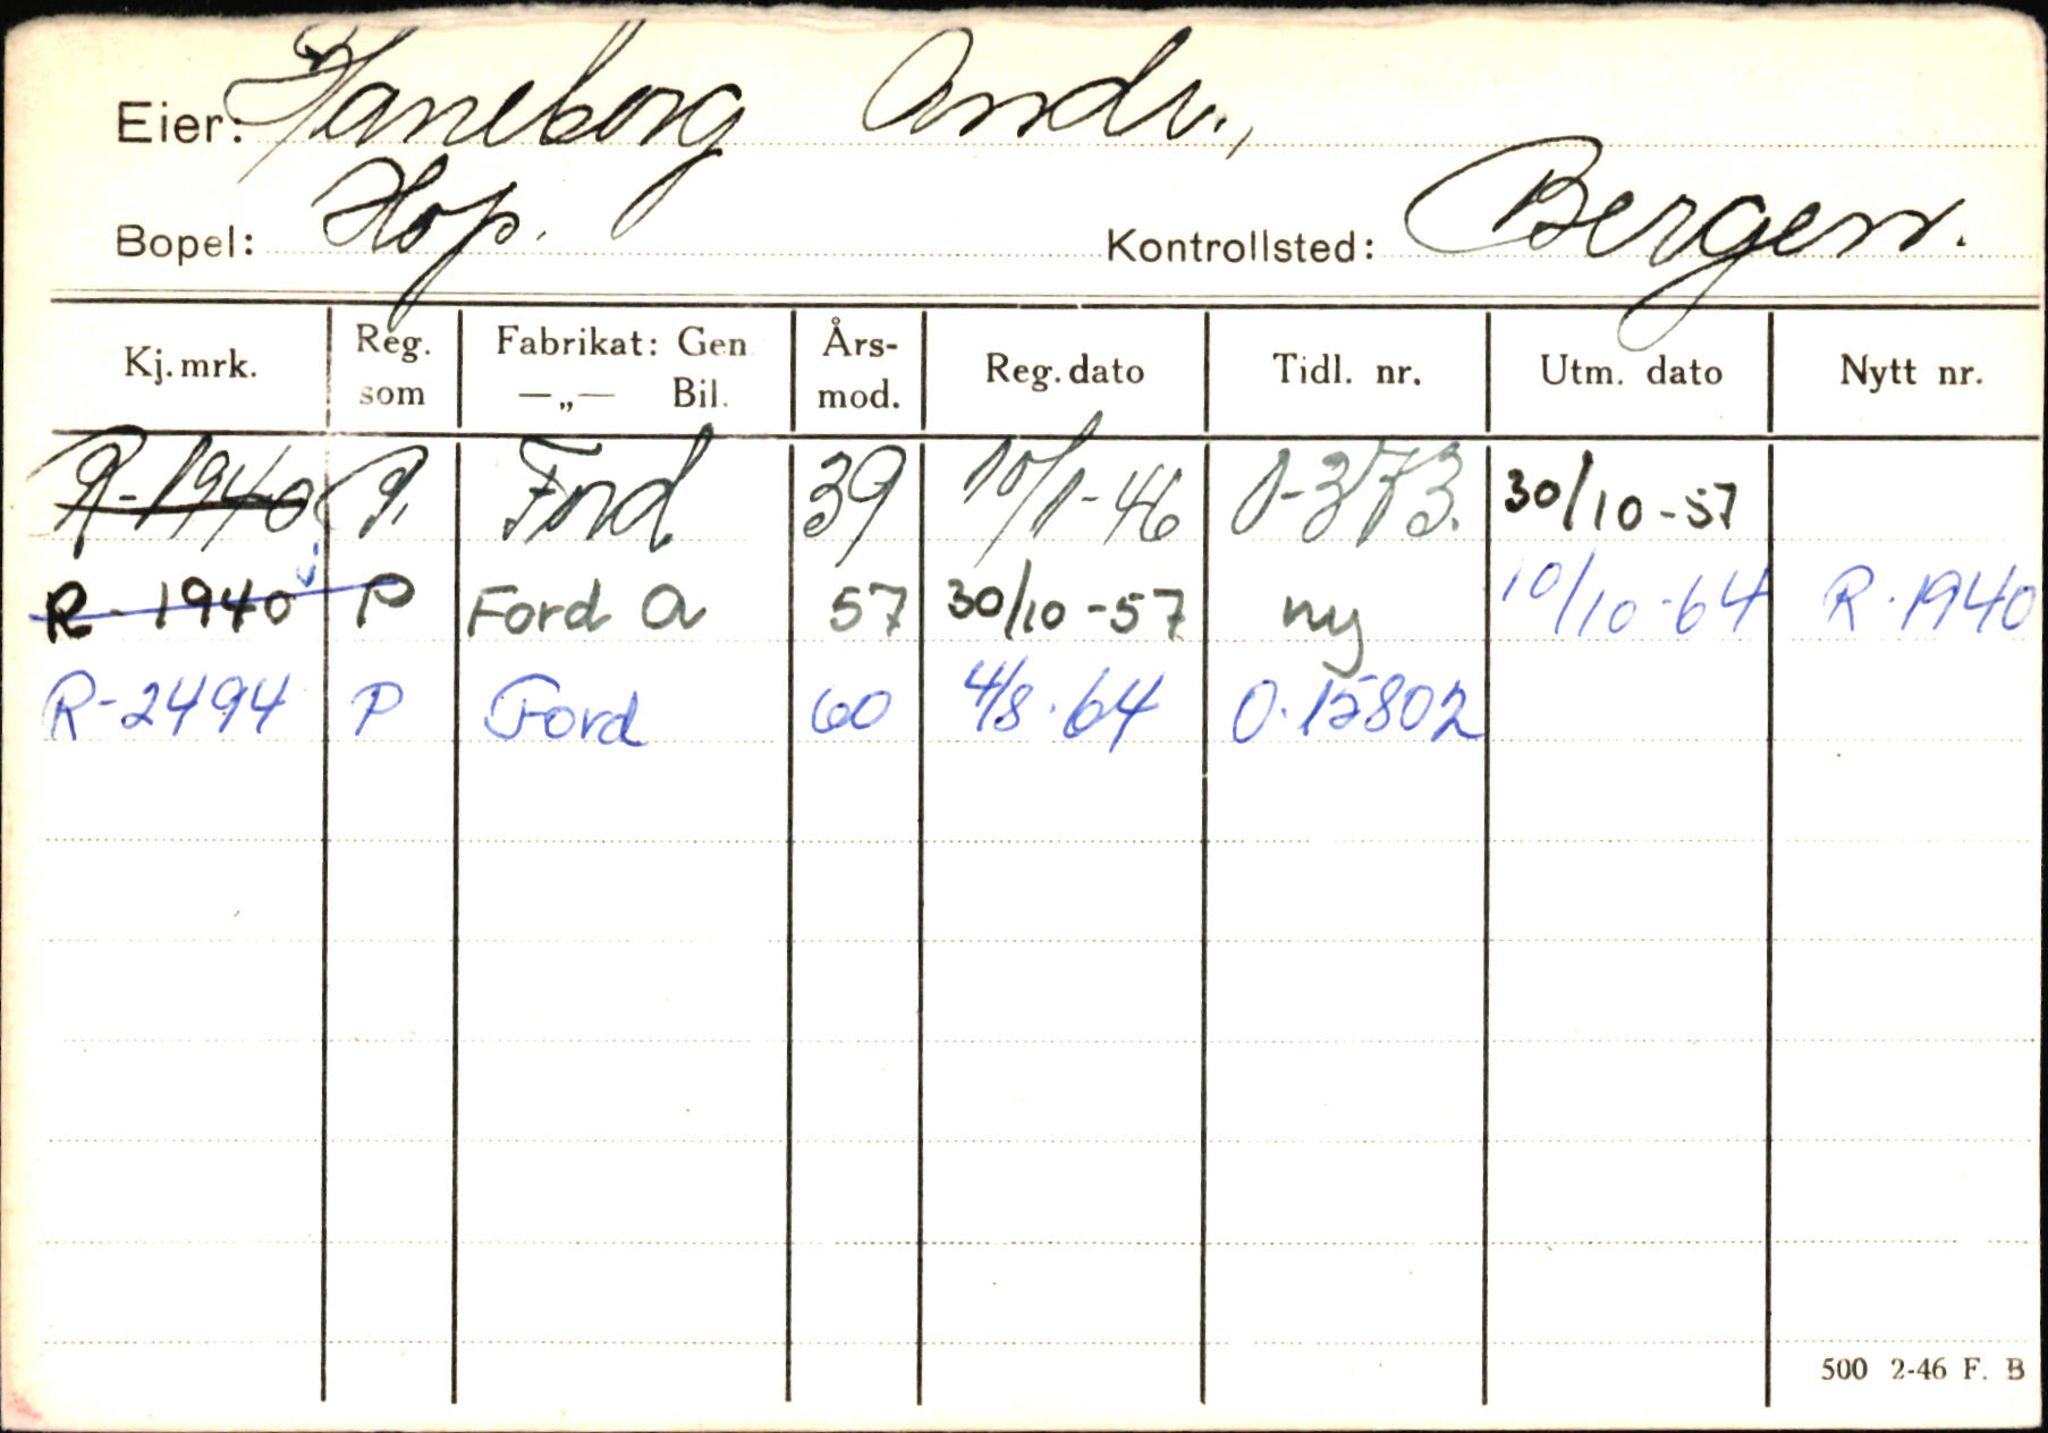 Eier: Janeborg Andr.,
Bopel: Hop. Kontrollsted: Bergen.
Kj.mrk. Reg. som Fabrikat: Gen —„— Bil. Års-mod. Reg. dato Tidl. nr. Utm. dato Nytt nr.
R-1940 P. Ford 39 10/1-46 O-373. 30/10-57
R-1940 P Ford a 57 30/10-57 ny 10/10-64 R-1940
R-2494 P Ford 60 4/8-64 O-15802
500 2-46 F. B